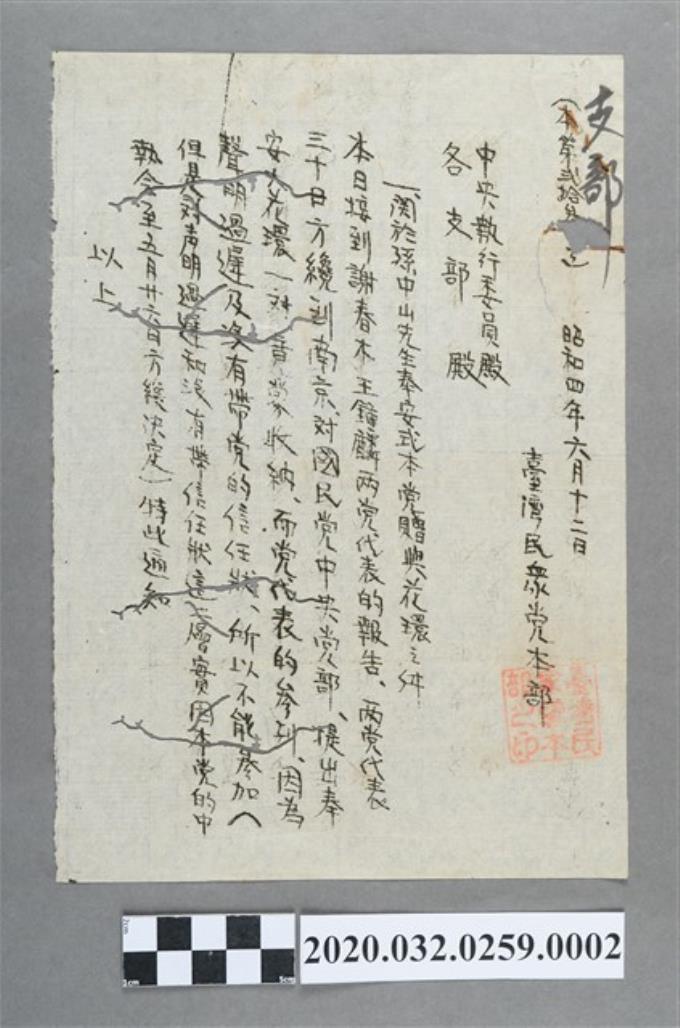 支部
(本第貳拾
昭和四年六月十二日
臺灣民衆党本部
臺灣民衆黨本部之印
中央執行委員殿
各支部殿
一、関於孫中山先生奉安式本党贈與花環之件
本日接到謝春木王鐘麟两党代表的報告、两党代表
三十日方纔到南京、対國民党中央党部、提出奉
安大花環一対、收納、而党代表的參列、因為
聲明過遲及没有帶党的信任狀、所以不能參加(
但是対声明過遲和没有帶信任狀這層實因本党的中
執会至五月廿六日方纔決定)特此通知
以上
2cm
1cm
5cm
2020.032.0259.0002